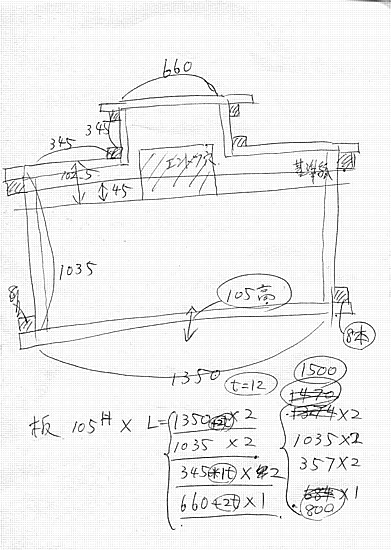 660
345
345
102.5
45
エンドツ穴
基準線
1035
105高
8本
1350
t=12
板 105H × L=
1350+2t×2
1035 ×2
345+1t×2
660+2t×1
1500
1470
1374×2
1035×2
357×2
684×1
800